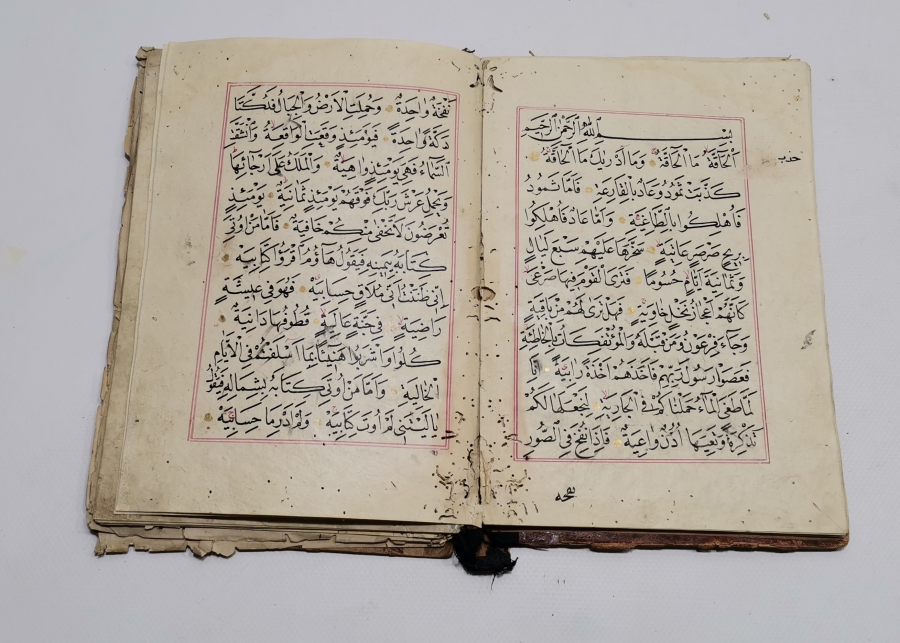 بِسْمِ اللَّهِ الرَّحْمٰنِ الرَّحِيمِ
اَلْحَاقَّةُ مَا الْحَاقَّةُ وَمَا اَدْرٰيكَ مَا الْحَاقَّةُ
كَذَّبَتْ ثَمُودُ وَعَادٌ بِالْقَارِعَةِ فَاَمَّا ثَمُودُ
فَاُهْلِكُوا بِالطَّاغِيَةِ وَاَمَّا عَادٌ فَاُهْلِكُوا
بِرِيحٍ صَرْصَرٍ عَاتِيَةٍ سَخَّرَهَا عَلَيْهِمْ سَبْعَ لَيَالٍ
وَثَمَانِيَةَ اَيَّامٍ حُسُومًا فَتَرَى الْقَوْمَ فِيهَا صَرْعٰى
كَاَنَّهُمْ اَعْجَازُ نَخْلٍ خَاوِيَةٍ فَهَلْ تَرٰى لَهُمْ مِنْ بَاقِيَةٍ
وَجَاءَ فِرْعَوْنُ وَمَنْ قَبْلَهُ وَالْمُؤْتَفِكَاتُ بِالْخَاطِئَةِ
فَعَصَوْا رَسُولَ رَبِّهِمْ فَاَخَذَهُمْ اَخْذَةً رَابِيَةً اِنَّا
لَمَّا طَغَى الْمَاءُ حَمَلْنَاكُمْ فِي الْجَارِيَةِ لِنَجْعَلَهَا لَكُمْ
تَذْكِرَةً وَتَعِيَهَا اُذُنٌ وَاعِيَةٌ فَاِذَا نُفِخَ فِي الصُّورِ
نَفْخَةٌ وَاحِدَةٌ وَحُمِلَتِ الْاَرْضُ وَالْجِبَالُ فَدُكَّتَا
دَكَّةً وَاحِدَةً فَيَوْمَئِذٍ وَقَعَتِ الْوَاقِعَةُ وَانْشَقَّتِ
السَّمَاءُ فَهِيَ يَوْمَئِذٍ وَاهِيَةٌ وَالْمَلَكُ عَلٰى اَرْجَائِهَا
وَيَحْمِلُ عَرْشَ رَبِّكَ فَوْقَهُمْ يَوْمَئِذٍ ثَمَانِيَةٌ يَوْمَئِذٍ
تُعْرَضُونَ لَا تَخْفٰى مِنْكُمْ خَافِيَةٌ فَاَمَّا مَنْ اُوتِيَ
كِتَابَهُ بِيَمِينِهِ فَيَقُولُ هَاؤُمُ اقْرَؤُا كِتَابِيَهْ
اِنِّي ظَنَنْتُ اَنِّي مُلَاقٍ حِسَابِيَهْ فَهُوَ فِي عِيشَةٍ
رَاضِيَةٍ فِي جَنَّةٍ عَالِيَةٍ قُطُوفُهَا دَانِيَةٌ
كُلُوا وَاشْرَبُوا هَنِيئًا بِمَا اَسْلَفْتُمْ فِي الْاَيَّامِ
الْخَالِيَةِ وَاَمَّا مَنْ اُوتِيَ كِتَابَهُ بِشِمَالِهِ فَيَقُولُ
يَا لَيْتَنِي لَمْ اُوتَ كِتَابِيَهْ وَلَمْ اَدْرِ مَا حِسَابِيَهْ